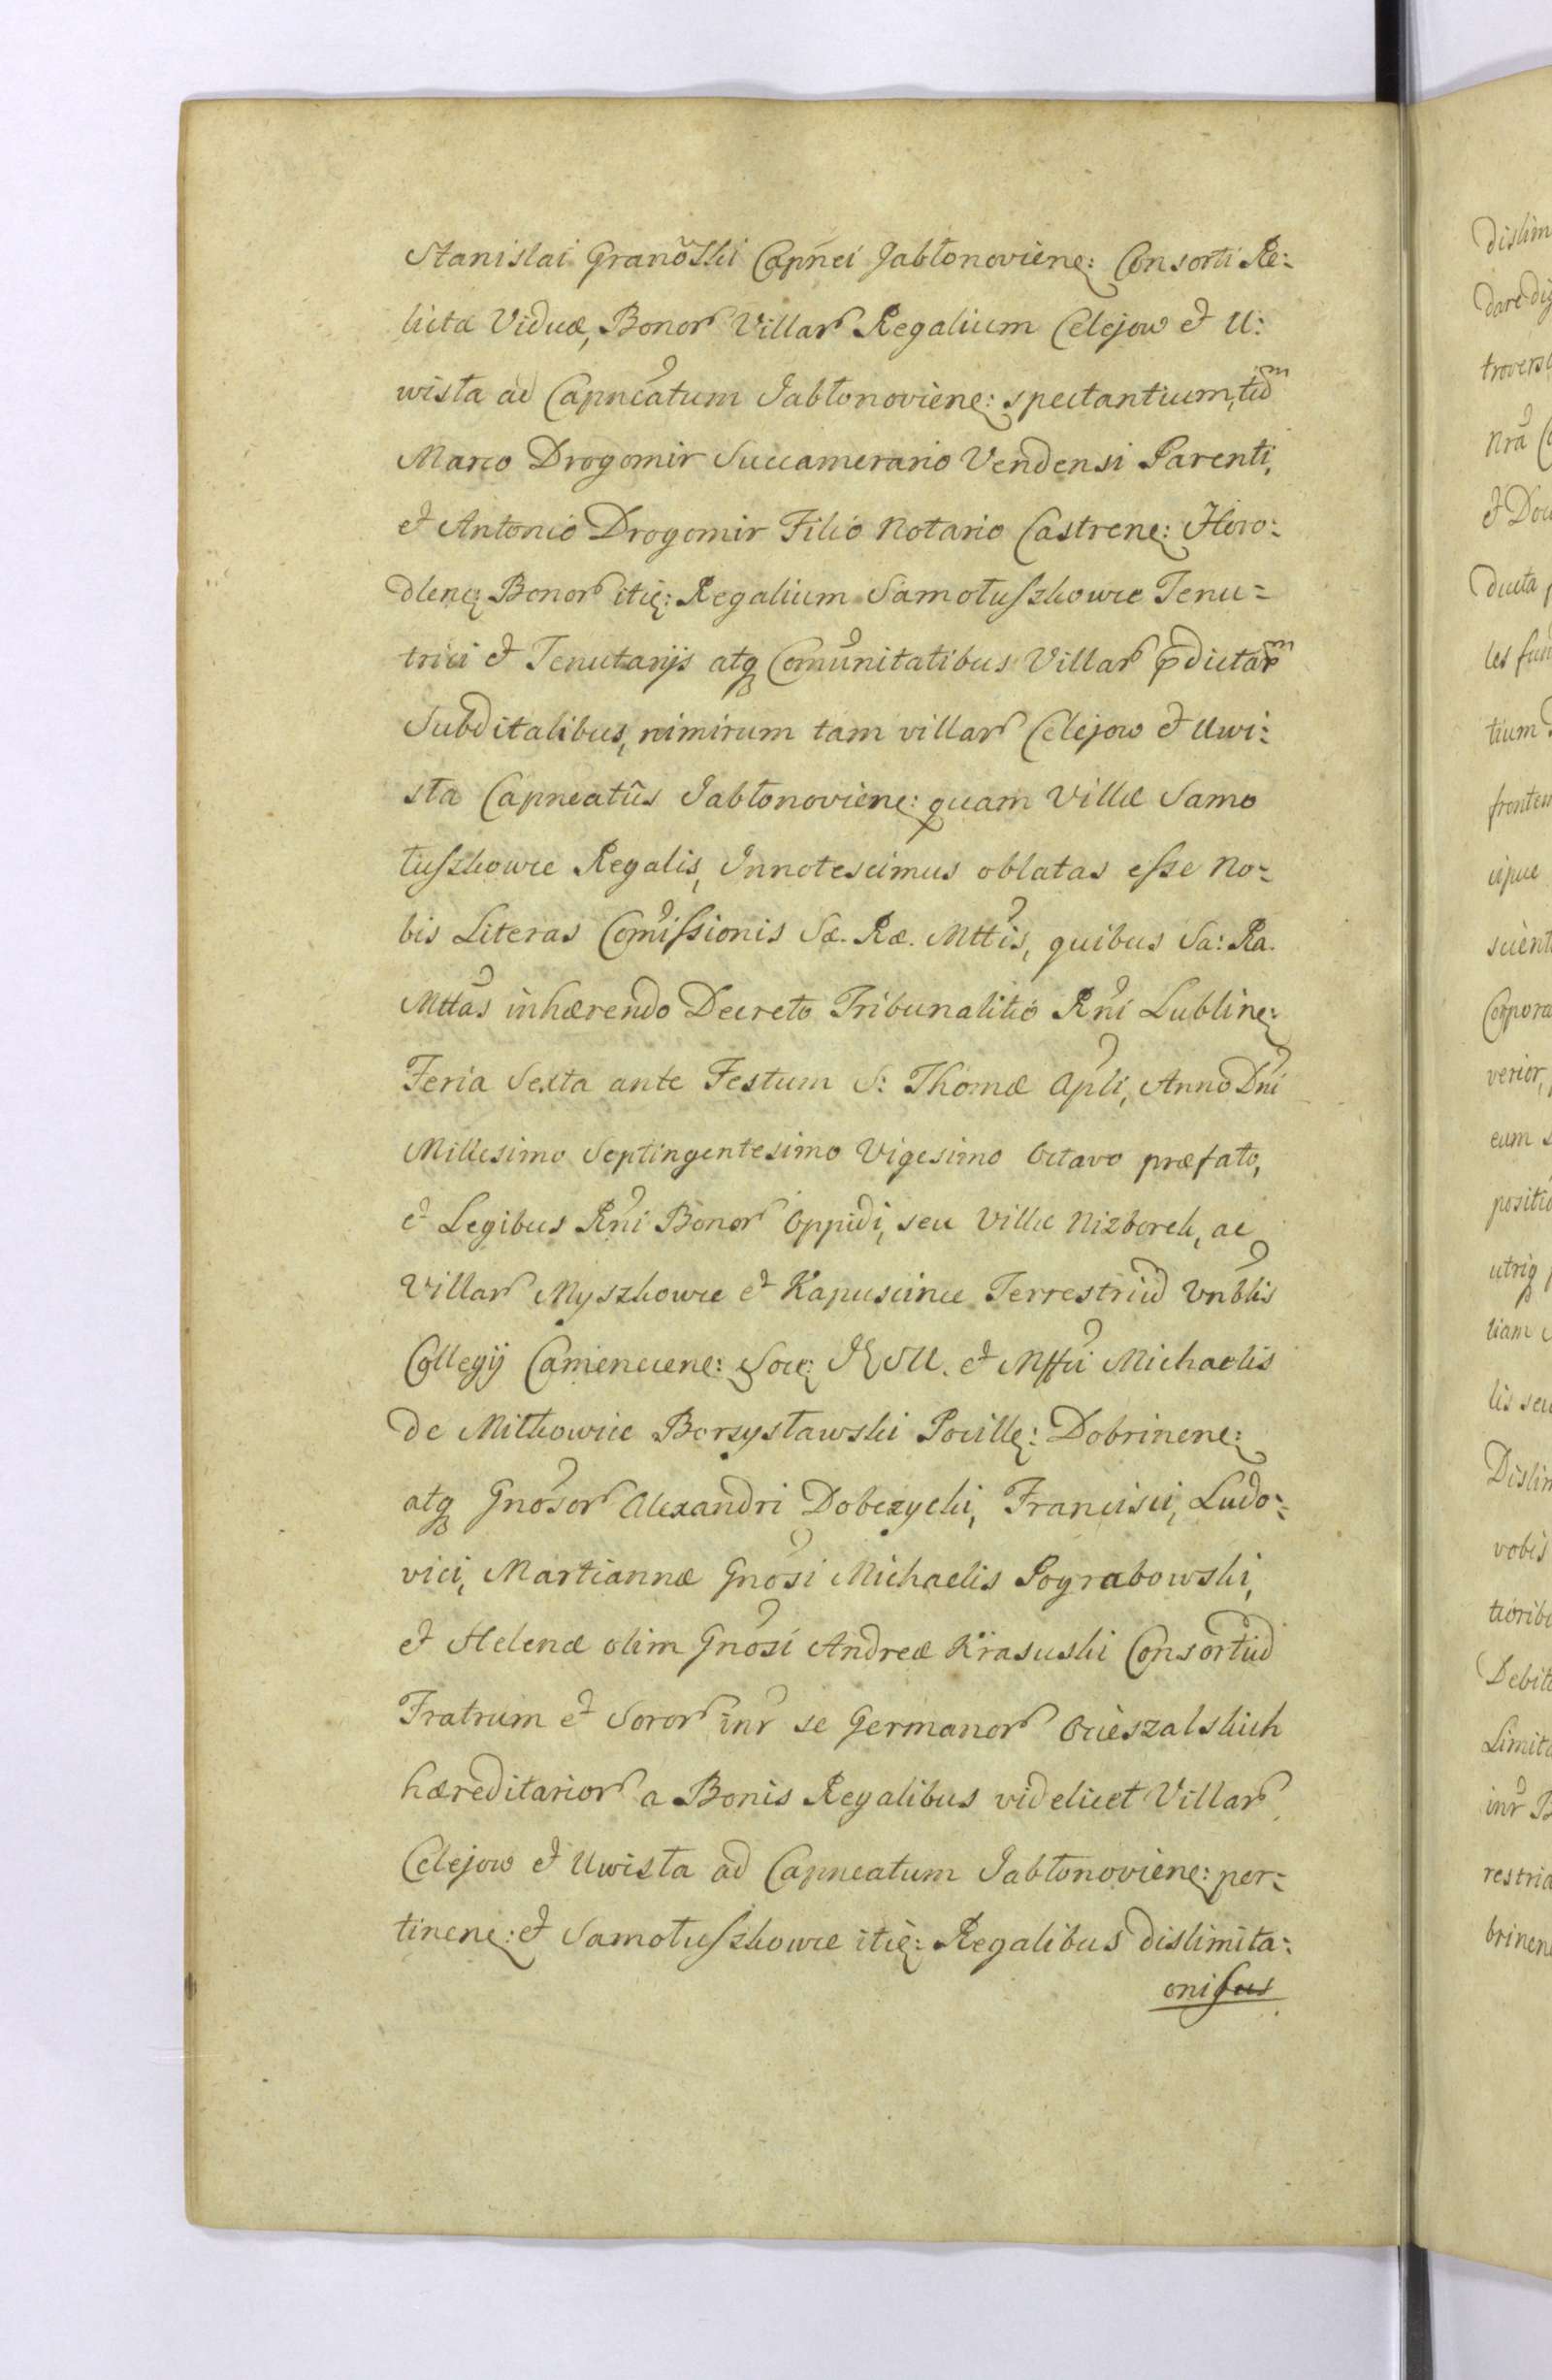 Stanislai Granõski Capnei Jabłonoviene: Consorti Re:
licta Viduæ, Bonor Villar Regalium Celejow et U:
wista ad Capneatum Jabłonoviene: spectantium, tũ
Marco Drogomir Succamerario Vendensi Parenti,
et Antonio Drogomir Filio Notario Castrene: Horo:
dlene Bonor itę: Regalium Samołuszkowce Tenu=
trici et Tenutarijs atq Comunitatibus Villar pdictar
Subditalibus, nimirum tam villar Celejow et Uwi:
sta Capneatûs Jabłonoviene: quam Villæ Samo
łuszkowce Regalis, Innotescimus oblatas esse No:
bis Literas Comissionis Sæ. Ræ. Mttis, quibus Sa: Ra.
Mttas inhærendo Decreto Tribunalitio Rni Lubline:
Feria Sexta ante Festum S: Thomæ Apli, Anno Dni
Millesimo Septingentesimo Vigesimo Octavo præfato,
et Legibus Rni Bonor Oppidi, seu Villæ Nizborek, ac
Villar Myszkowce et Kapuscince Terrestriũ Vnblis
Collegij Camenecene: Soce: JESU. et Mffci Michaelis
de Mitkowice Borzysławski Pocille: Dobrinene:
atq Gnosor Alexandri Dobczycki, Francisci, Ludo:
vici, Martiannæ Gnosi Michaelis Pograbowski,
et Helenæ olim Gnosi Andreæ Krasuski Consortiũ
Fratrum et Soror inr se Germanor Ocieszalskich
hæreditarior a Bonis Regalibus videlicet Villar
Celejow et Uwista ad Capneatum Jabłonoviene: per:
tinene: et Samołuszkowce itę: Regalibus dislimita:
onibus